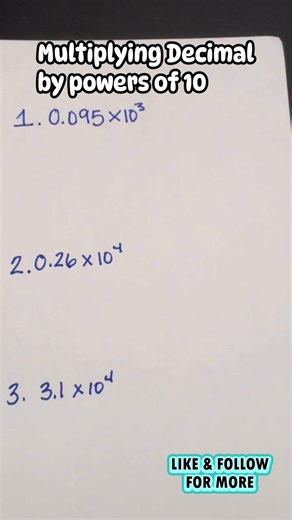 Multiplying Decimal
by powers of 10
1. 0.095 x 10³
2. 0.26 x 10⁴
3. 3.1 x 10⁴
LIKE & FOLLOW
FOR MORE